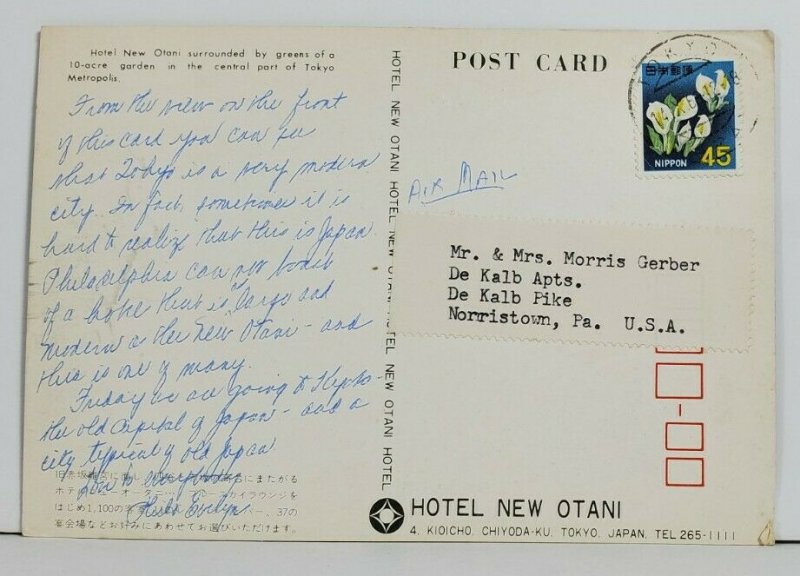 Hotel New Otani surrounded by greens of a
10-acre garden in the central part of Tokyo
Metropolis.
From the view on the front
of this card you can see
that Tokyo is a very modern
city. In fact, sometimes it is
hard to realize that this is Japan.
Philadelphia can not boast
of a hotel that is as large and
modern as the New Otani - and
this is one of many.
Friday we are going to Kyoto -
the old capital of Japan - and a
city typical of old Japan
Love to everybody
Evelyn
ホテル
はじめ1,100の
37の
宴会場などお好みにあわせてお選びいただけます。
HOTEL NEW OTANI HOTEL NEW OTANI HOTEL NEW OTANI HOTEL
POST CARD
TOKYO
日本郵便
NIPPON 45
AIR MAIL
Mr. & Mrs. Morris Gerber
De Kalb Apts.
De Kalb Pike
Norristown, Pa. U.S.A.
HOTEL NEW OTANI
4, KIOICHO, CHIYODA-KU, TOKYO, JAPAN. TEL 265-1111